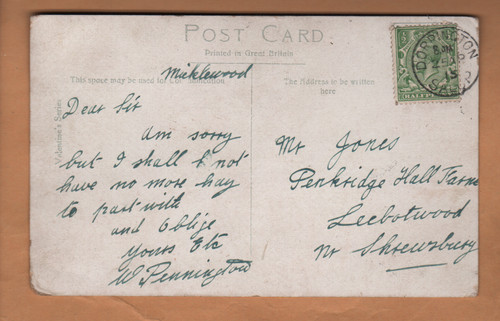 POST CARD.
Printed in Great Britain
This space may be used for Communication
The Address to be written
here
Valentine's Series
DORRINGTON
15
SALOP
HALFPENNY
Micklewood
Dear Sir
Am sorry
but I shall not
have no more hay
to part with
and Oblige
Yours Etc
W Pennington
Mr Jones
Penkridge Hall Farm
Leebotwood
Nr Shrewsbury